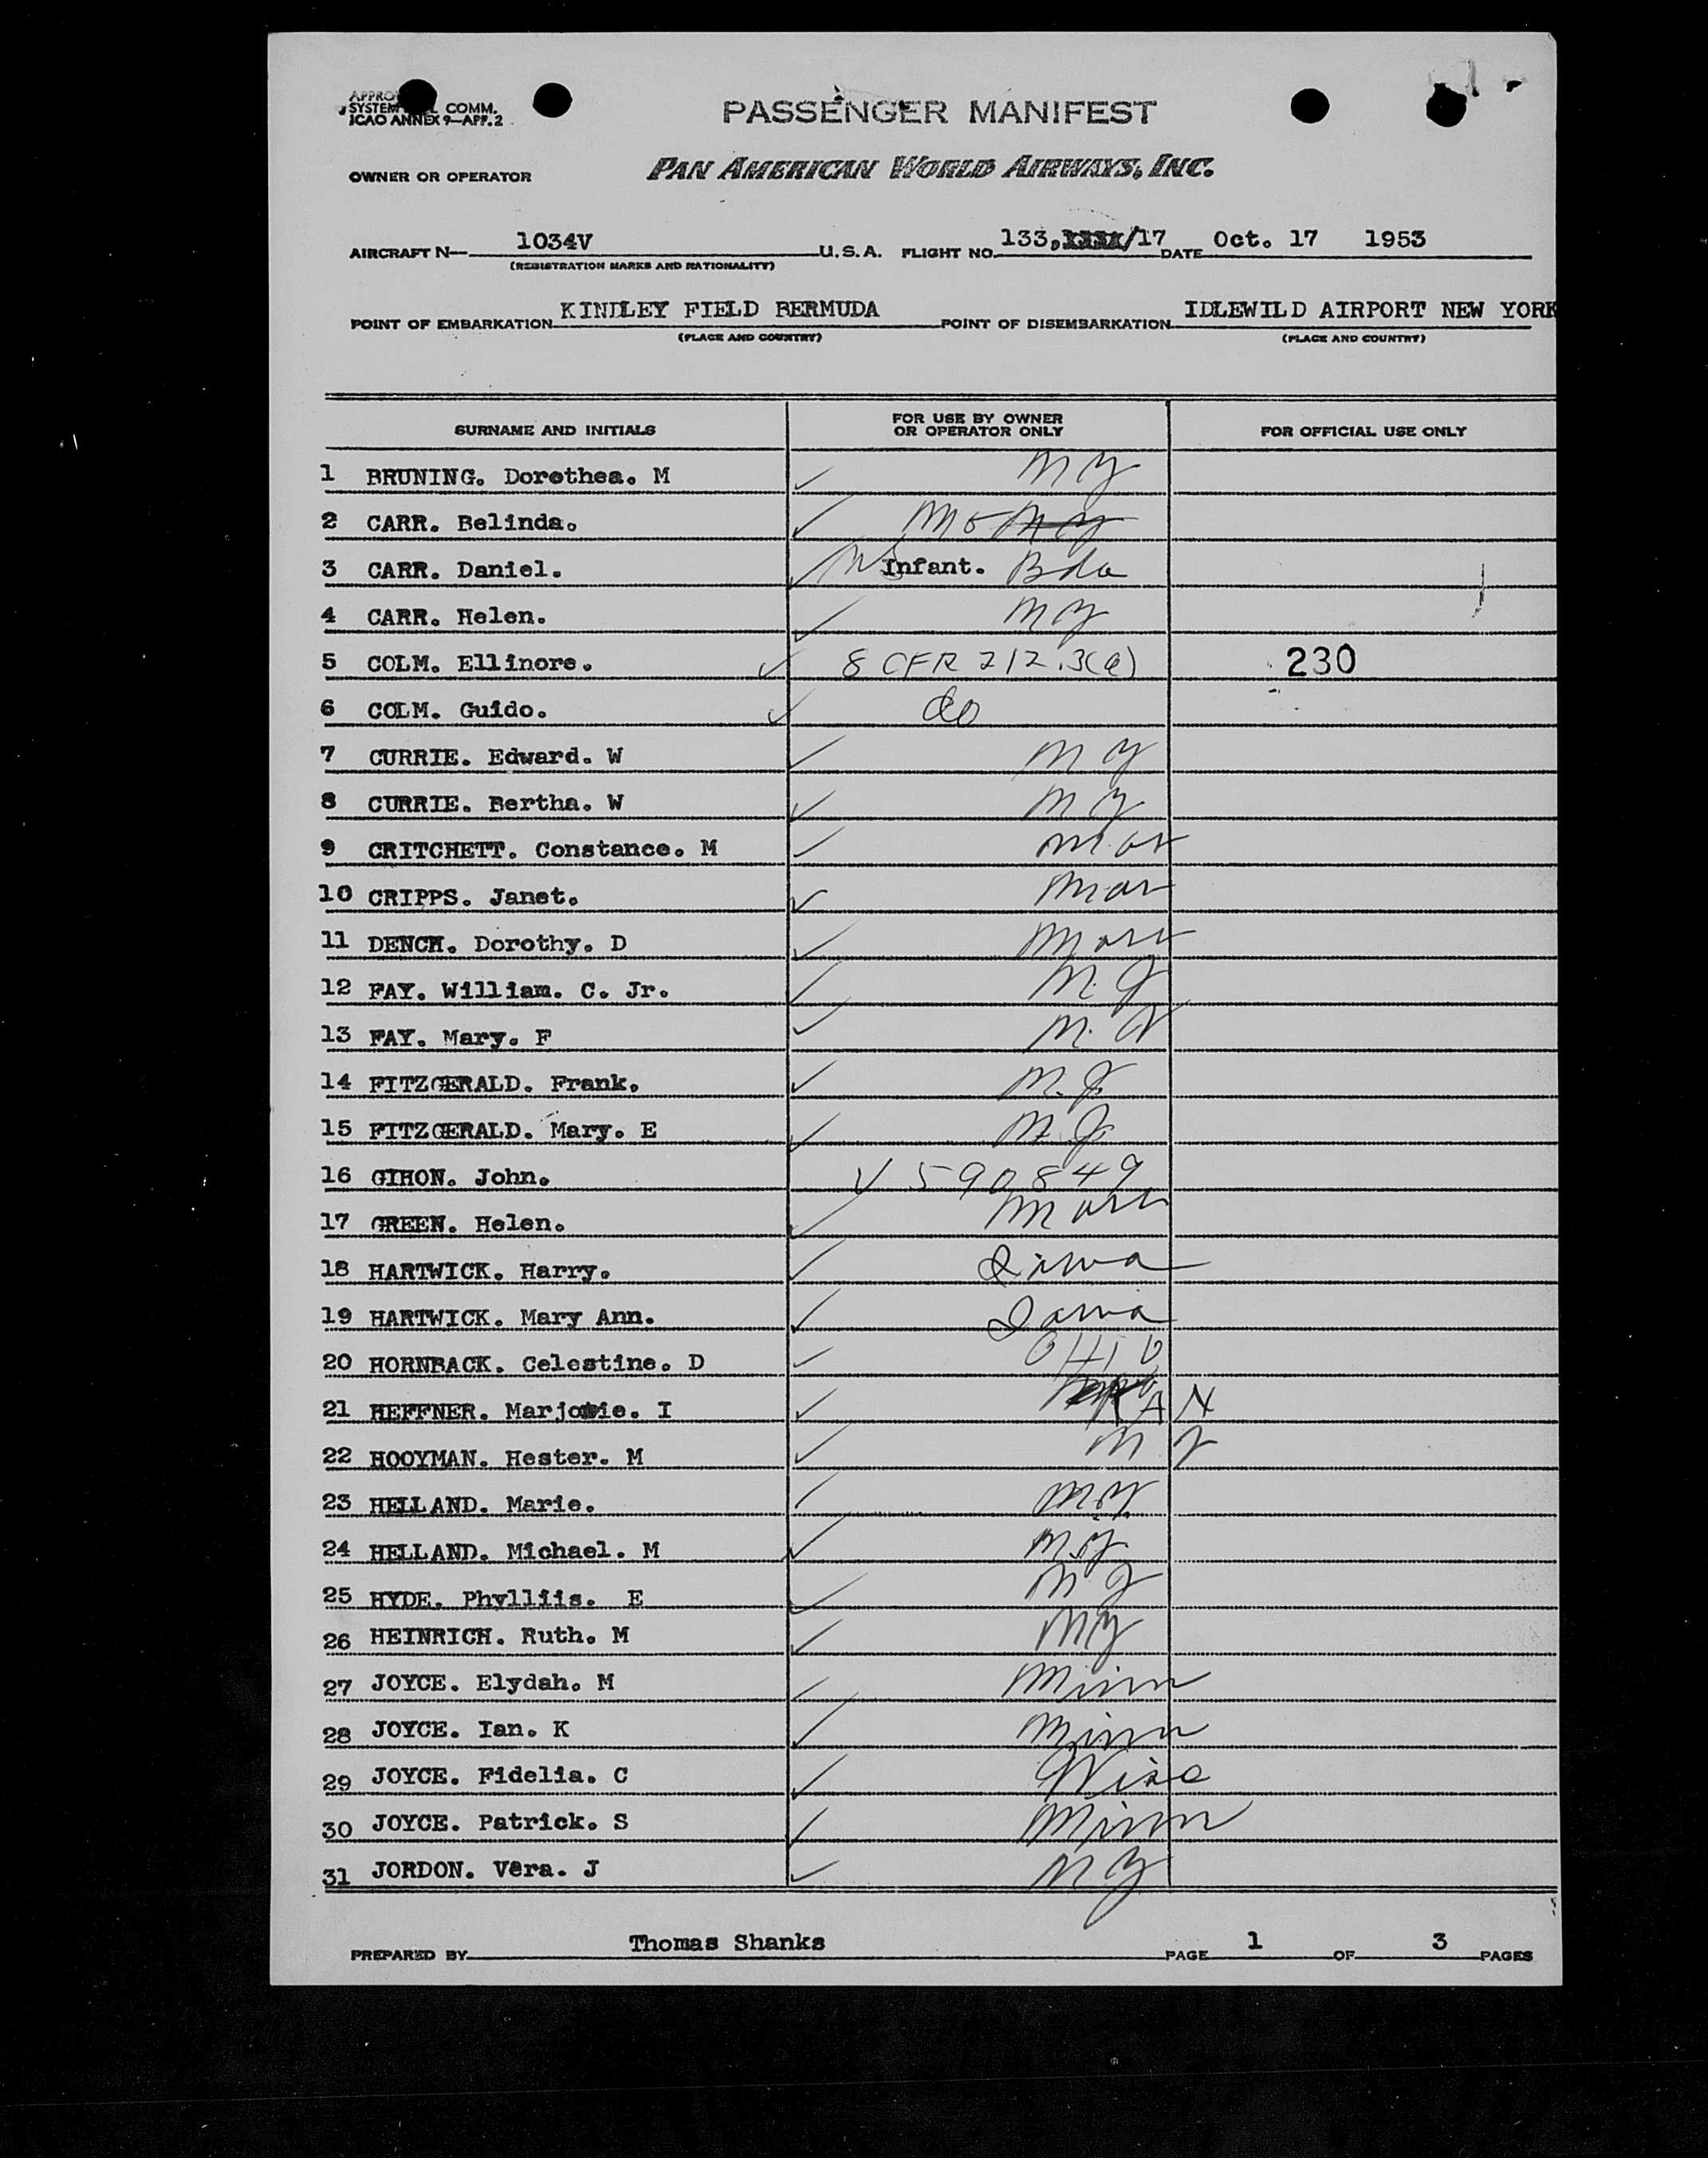 APPRO
SYSTEM COMM.
ICAO ANNEX 9—APP. 2
PASSENGER MANIFEST
OWNER OR OPERATOR PAN AMERICAN WORLD AIRWAYS, INC.
AIRCRAFT N— 1034V U.S.A. FLIGHT NO. 133, /17 DATE Oct. 17 1953
(REGISTRATION MARKS AND NATIONALITY)
POINT OF EMBARKATION KINDLEY FIELD BERMUDA POINT OF DISEMBARKATION IDLEWILD AIRPORT NEW YORK
(PLACE AND COUNTRY) (PLACE AND COUNTRY)
SURNAME AND INITIALS FOR USE BY OWNER OR OPERATOR ONLY FOR OFFICIAL USE ONLY
1 BRUNING. Dorothea. M NY
2 CARR. Belinda. Mo NY
3 CARR. Daniel. Infant. Bda
4 CARR. Helen. NY
5 COLM. Ellinore. 8 CFR 212.3(a) 230
6 COLM. Guido. do
7 CURRIE. Edward. W NY
8 CURRIE. Bertha. W NY
9 CRITCHETT. Constance. M Mas
10 CRIPPS. Janet. Mas
11 DENCH. Dorothy. D Mass
12 FAY. William. C. Jr. N.J
13 FAY. Mary. F
14 FITZGERALD. Frank. N.J.
15 FITZGERALD. Mary. E N.J.
16 GIHON. John. V 590849
17 GREEN. Helen. Mass
18 HARTWICK. Harry. Iowa
19 HARTWICK. Mary Ann. Iowa
20 HORNBACK. Celestine. D OHIO
21 HEFFNER. Marjorie. I KAN
22 HOOYMAN. Hester. M NJ
23 HELLAND. Marie. N.Y.
24 HELLAND. Michael. M N.Y
25 HYDE. Phylliis. E NJ
26 HEINRICH. Ruth. M NY
27 JOYCE. Elydah. M Minn
28 JOYCE. Ian. K Minn
29 JOYCE. Fidelia. C Wisc
30 JOYCE. Patrick. S Minn
31 JORDON. Vera. J NY
PREPARED BY Thomas Shanks PAGE 1 OF 3 PAGES